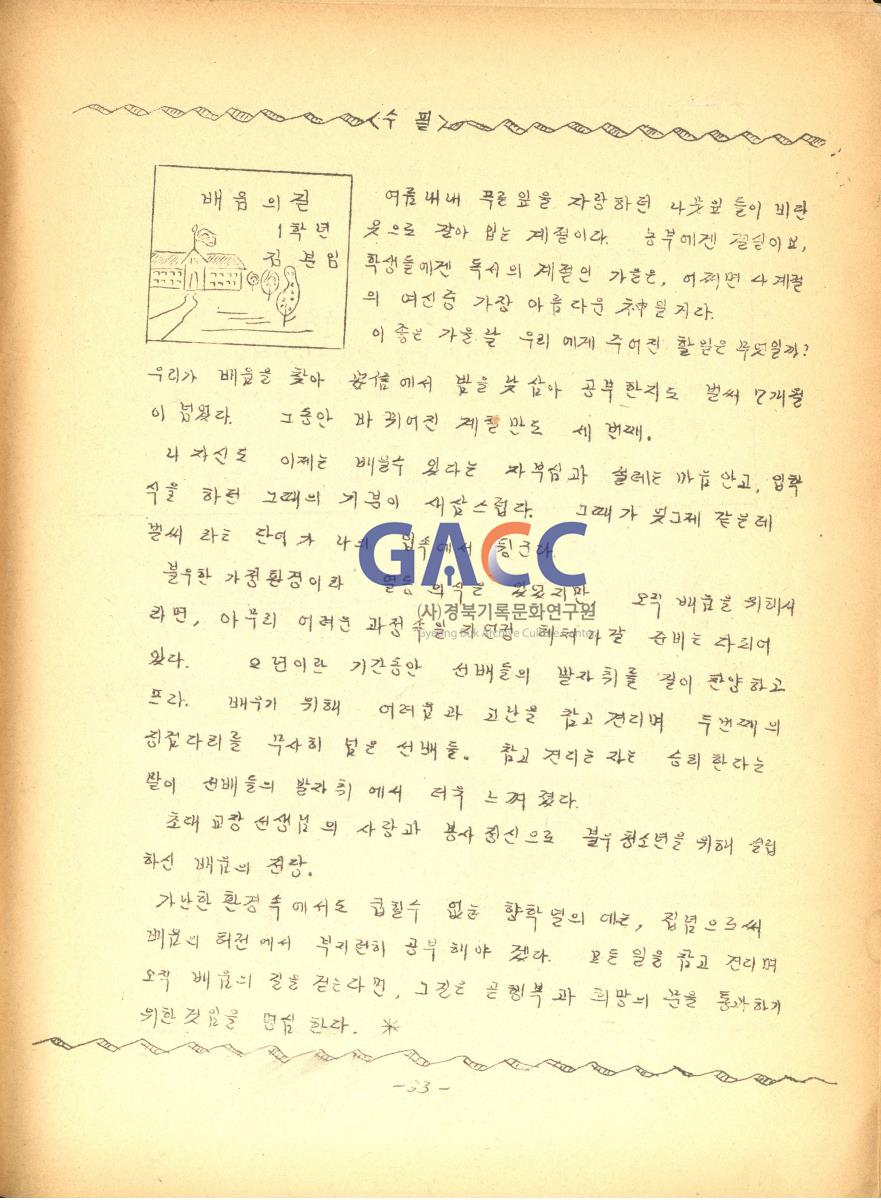 <수 필>
배움의 길
1학년
김 분 임
여름내내 푸른잎을 자랑하던 나뭇잎들이 비단
옷으로 갈아 입는 계절이다. 농부에겐 결실이요,
학생들에겐 독서의 계절인 가을은, 어쩌면 4계절
의 여신중 가장 아름다운 神일거다.
이 좋은 가을날 우리에게 주어진 할일은 무엇일까?
우리가 배움을 찾아 에서 밤을 낮삼아 공부한지도 벌써 7개월
이 넘었다. 그동안 바뀌어진 계절만도 세 번째.
나 자신도 이제는 배울수 있다는 자부심과 설레는 마음안고, 입학
식을 하던 그때의 기분이 새삼스럽다. 그때가 엊그제 같은데
벌써 라는 단어가 나의 입속에서 된다.
불우한 가정환경이라 열등 의식을 오직 배움을 위해서
라면, 아무리 어려운 과정속일 헤쳐나갈 준비는 다되어
있다. 오년이란 기간동안 선배들의 발자취를 길이 찬양하고
프다. 배우기 위해 어려움과 고난을 참고 견디며 두번째의
징검다리를 무사히 넘은 선배들. 참고 견디는 자는 승리한다는
말이 선배들의 발자취에서 더욱 느껴졌다.
초대 교장선생님의 사랑과 봉사정신으로 불우청소년을 위해 설립
하신 배움의 전당.
가난한 환경속에서도 굽힐수 없는 향학열의 예는, 집념으로써
배움의 터전에서 부지런히 공부해야 겠다. 모든 일을 참고 견디며
오직 배움의 길을 걷는다면, 그길은 곧 행복과 희망의 문을 통과하기
위한것임을 명심한다. ※
GACC
(사)경북기록문화연구원
-33-